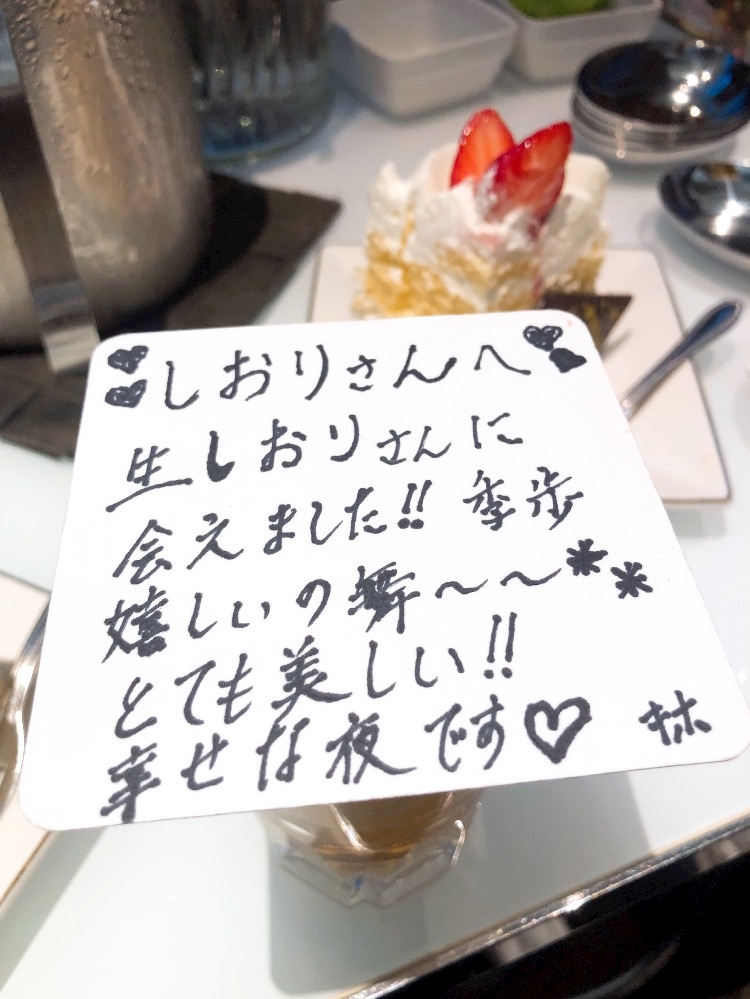 しおりさんへ
生しおりさんに
会えました!! 季歩
嬉しいの舞〜〜**
とても美しい!!
幸せな夜です♡ 林